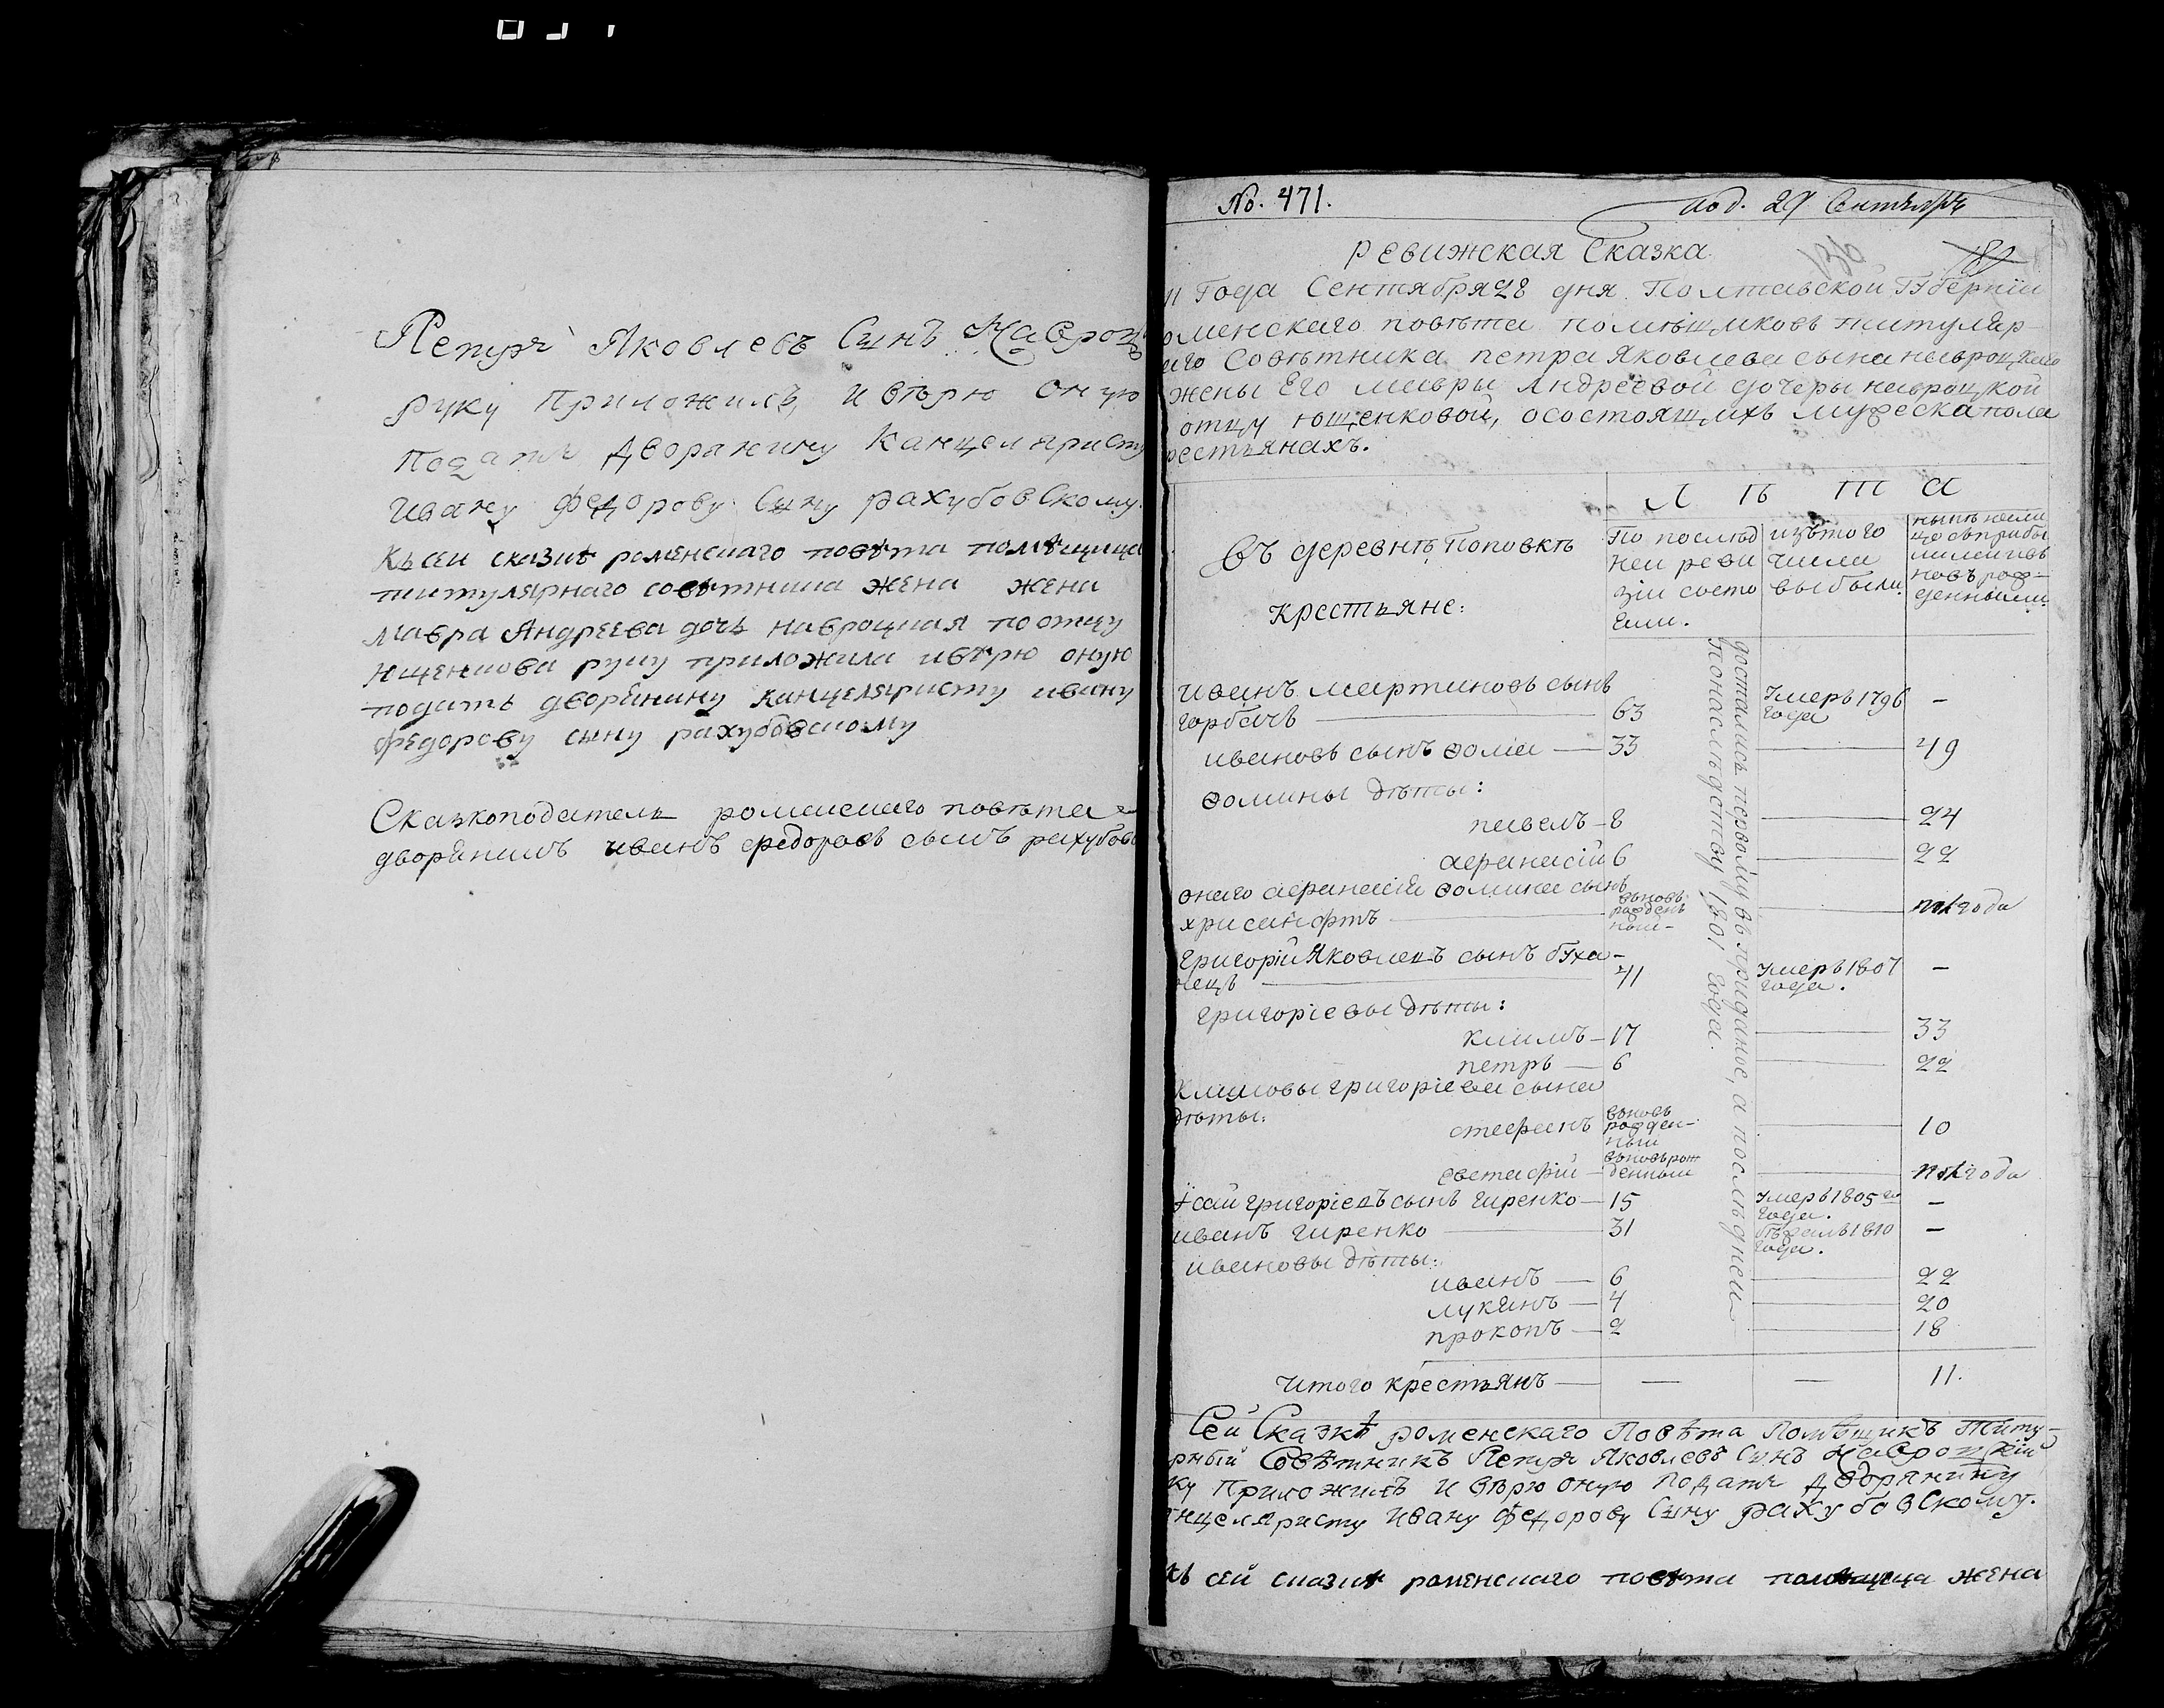 Петръ Яковлевъ Сынъ Навроц
руку приложилъ, и вѣрю оную
подать Дворянину Канцеляристу
Ивану Федорову Сыну рахубовскому.
Къ сеи сказкѣ роменскаго повѣта помѣщица
титулярнаго совѣтника жена жена
Мавра Андреева дочь навроцкая по отцу
Ющенкова руку приложила и вѣрю оную
подать дворянину канцеляристу ивану
федорову сыну рахубовскому
Сказкоподатель роменскаго повѣта
дворянинъ иванъ федоровъ сынъ рахубовс
No. 471.
под. 29 Сентября
ревижская Сказка
136
11 Года Сентября 28 дня Полтавской Губерніи
оменскаго повѣта помѣщиковъ титуляр-
наго Совѣтника петра Яковлева сына навроцкаго
жены Его мавры Андреевой дочеры навроцкой
отцу ющенковой, осостоящихъ мужеска пола
рестьянахъ.
Л ѣ т а
въ деревнѣ Поповкѣ
крестьяне:
По послѣд
ней реви
зіи состо
яли.
изътого
числа
выбыли.
нынѣ нали
цо съприбы
лыми и въ
новърож-
денными.
иванъ мартиновъ сынъ
горбачъ — 63 Умеръ 1796 года —
ивановъ сынъ ѳома — 33 — 49
ѳомины дѣты:
павелъ — 8 — 24
афанасій 6 — 22
онаго афанасія ѳомина сынъ
хрисанфтъ — вновь рожденный — пол года
григорій Яковлевъ сынъ бУха-
нецъ — 41 Умеръ 1807 года. —
григоріевы дѣты:
климъ — 17 — 33
петръ — 6 — 22
климовы григоріева сына
дѣты:
стефанъ вновь рожденный — 10
евстафій — вновьрожденный — пол года
Ісай григоріевъ сынъ гиренко — 15 Умеръ 1805 го года. —
иванъ гиренко — 31 бѣжалъ 1810 года. —
ивановы дѣты:
иванъ — 6 — 22
лукянъ — 4 — 20
прокопъ — 2 — 18
достались первому въ приданое, а последней
понаслѣдству 1801 года.
Итого крестьянъ — — — 11.
Сей Сказкѣ роменскаго Повѣта Помѣщикъ Титу-
рный Совѣтникъ Петръ Яковлевъ Сынъ Навроцкій
ку приложилъ и вѣрю оную подать Дворянину
нцеляристу Ивану Федорову Сыну рахубовскому.
къ сей сказкѣ роменскаго повѣта помѣщица жена